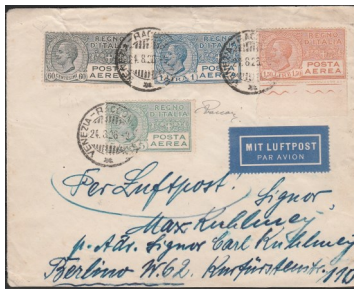 REGNO D'ITALIA
POSTA AEREA
60 CENTESIMI 60
REGNO D'ITALIA
POSTA AEREA
LIRA 1
REGNO D'ITALIA
POSTA AEREA
VENEZIA
24.8.26
REGNO D'ITALIA
POSTA AEREA
MIT LUFTPOST
PAR AVION
Per Luftpost! Signor
Max Kuhlmey
p. Adr. Signor Carl Kuhlmey
Berlino W62. Kurfürstenstr. 110